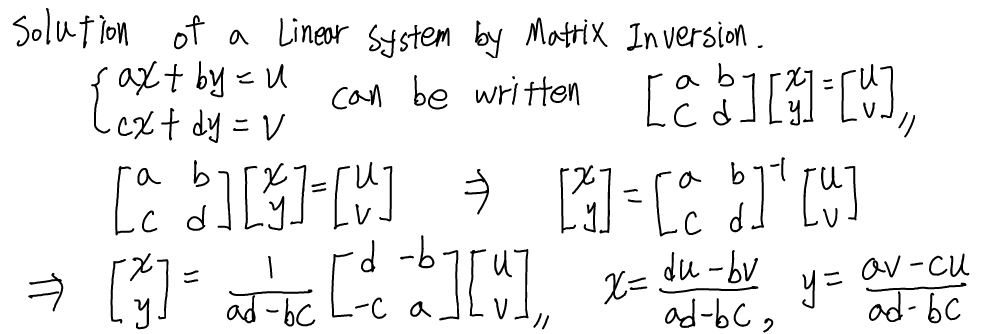 Solution of a Linear System by Matrix Inversion.
{ ax + by = u
cx + dy = v can be written [a b; c d][x; y] = [u; v],,
[a b; c d][x; y] = [u; v] ⇒ [x; y] = [a b; c d]⁻¹ [u; v]
⇒ [x; y] = 1/(ad-bc) [d -b; -c a][u; v],, x = (du-bv)/(ad-bc), y = (av-cu)/(ad-bc)